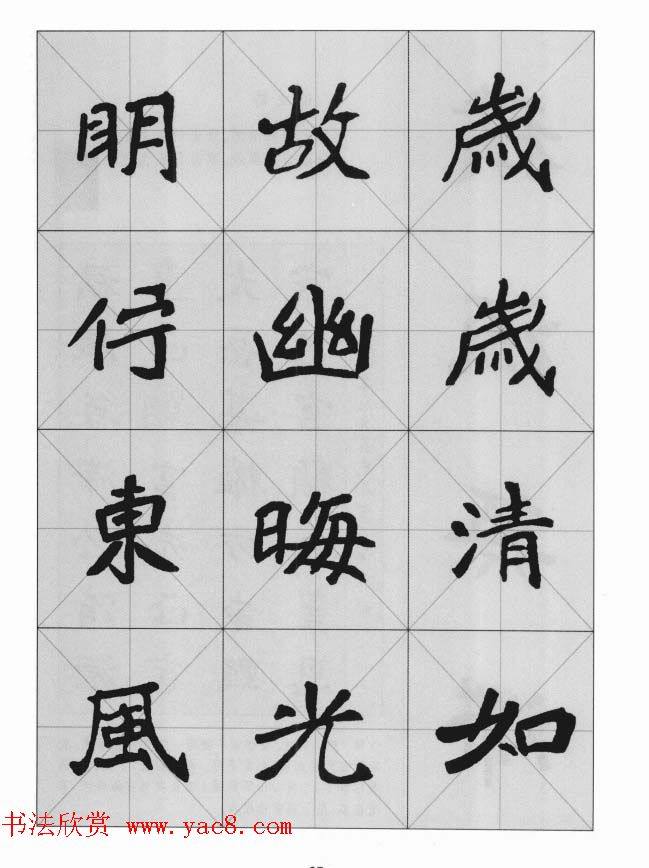 歲歲清如
故幽晦光
眀佇東風
书法欣赏 www.yac8.com